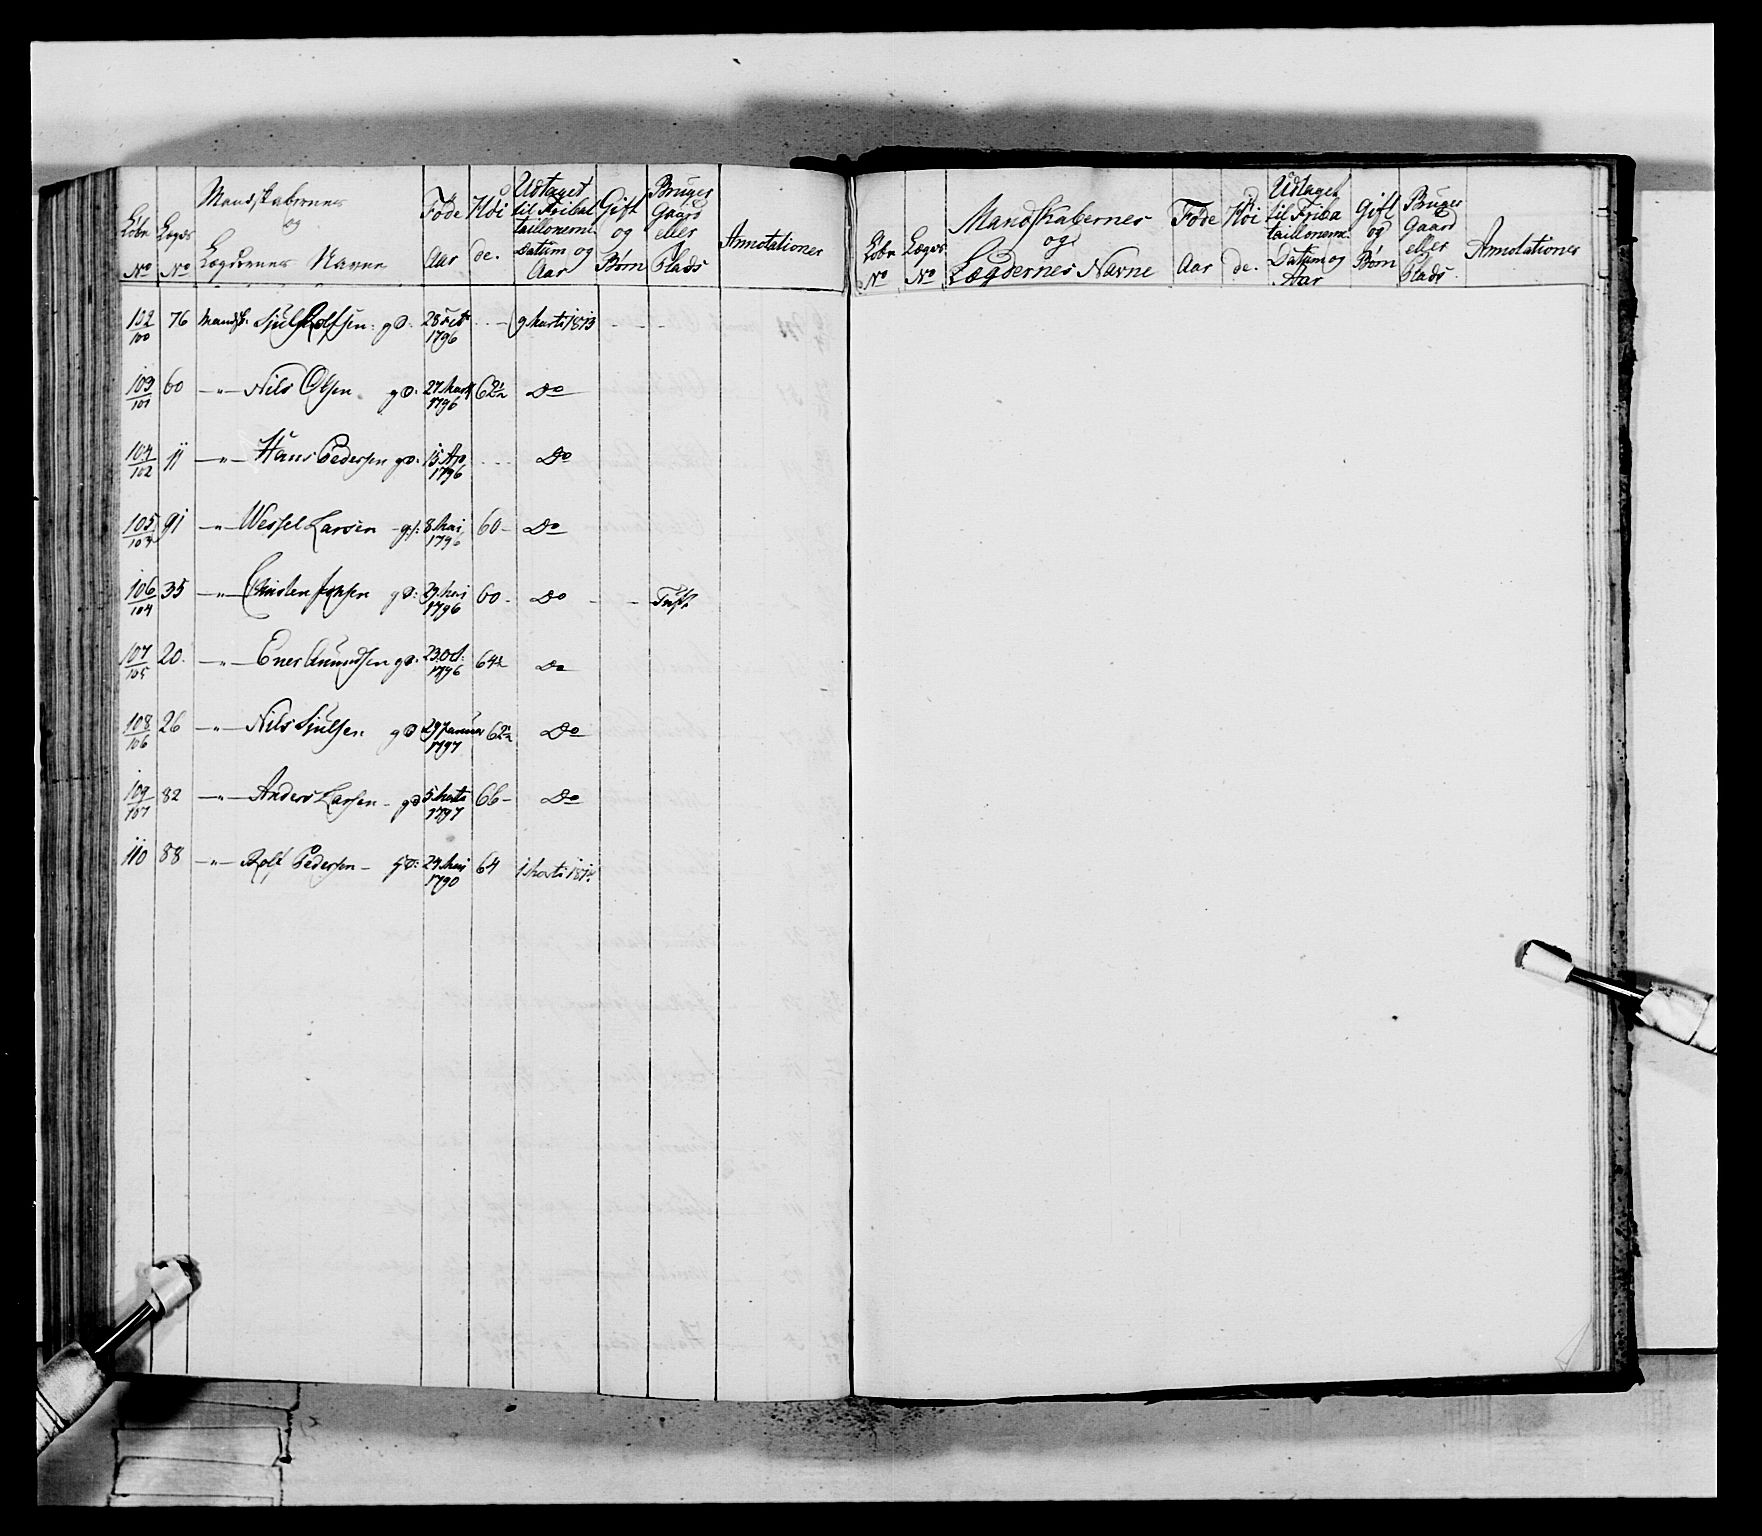 Løbe No
Lægds No
Mandskabernes og Lægdernes Navne
Føde Aar
Høide.
Udtaget til Fribataillonerne Datum og Aar
Gift og Børn
Bruger Gaard eller Plads
Annotationer
102/100 76 Mandsk: Siul Rolfsen: g D: 1796 - - - 9 Marti 1813 - - -
103/101 60 —"— Nils Olsen g D: 27 Marti 1796 62½ Do
104/102 11 —"— Hans Pedersen g D: 15 Ap 1796 - - - Do
105/103 91 —"— Wessel Larsen 8 Mai 1796 60 - Do
106/104 35 —"— Christen g D: 29 Mai 1796 60 - Do - -
107/105 20. —"— Ener Amundsen g D: 23 Oct: 1796 64½ Do
108/106 26 —"— Nils Siulsen g D 29 Januar 1797 62½ Do
109/107 82 —"— Anders Larsen - g D 5 Marti 1797 66 - Do
110 88 —"— Rolf Pedersen - g D: 24 Mai 1790 64 1 Marti 1814.
Løbe No
Lægds No
Mandskabernes og Lægdernes Navne
Føde Aar
Høide.
Udtaget til Fribataillonerne Datum og Aar
Gift og Børn
Bruger Gaard eller Plads.
Annotationer